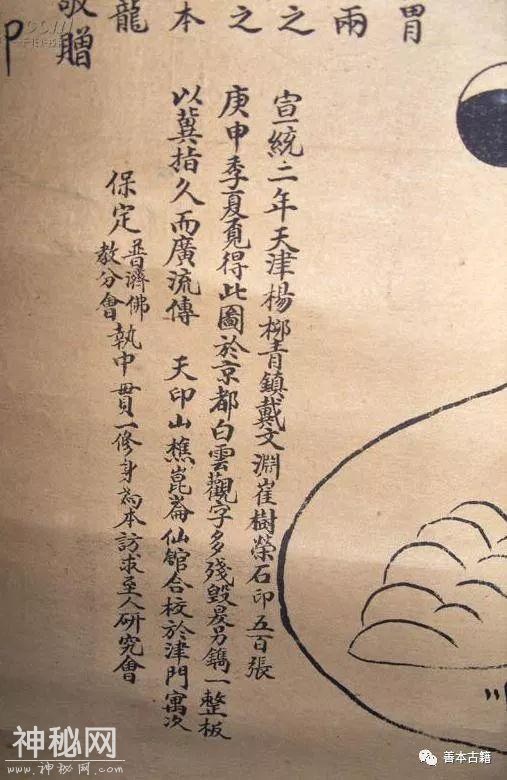 胃
兩
之
之
本
龍
敬贈
印
宣統二年天津楊柳青鎮戴文淵崔樹榮石印五百張
庚申季夏覓得此圖於京都白雲觀字多殘毀爰另鐫一整板
以冀指久而廣流傳 天印山樵崑崙仙館合校於津門寓次
保定普濟佛教分會執中貫一修身為本訪求至人研究會
神秘网
www.神秘网.com
善本古籍